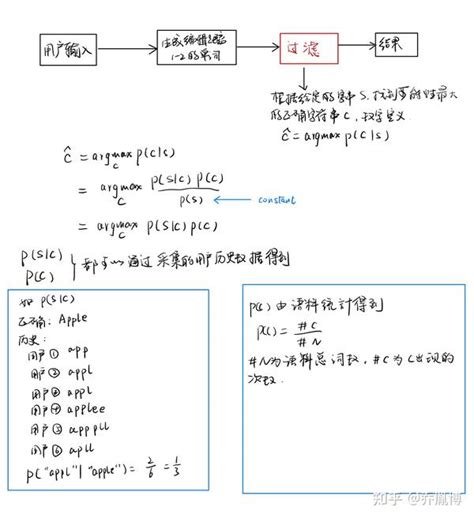 用户输入
生成编辑距离
1-2的单词
过滤
结果
根据给定的字串 S, 找到可能性最大
的正确字符串 C, 数学定义
ĉ = argmax p(c|s)
ĉ = argmax p(c|s)
c
= argmax p(s|c) p(c)
c p(s)
constant
= argmax p(s|c) p(c)
c
p(s|c)
p(c)
} 都可以通过采集的用户历史数据得到
如 p(s|c)
正确: Apple
历史:
用户① app
用户② appl
用户③ appl
用户④ applee
用户⑤ apppll
用户⑥ apll
p("appl"|"apple") = 2/6 = 1/3
p(c) 由语料统计得到
p(c) = #C
#N
#N为语料总词数, #C 为 C出现的
次数.
知乎 @乔胤博